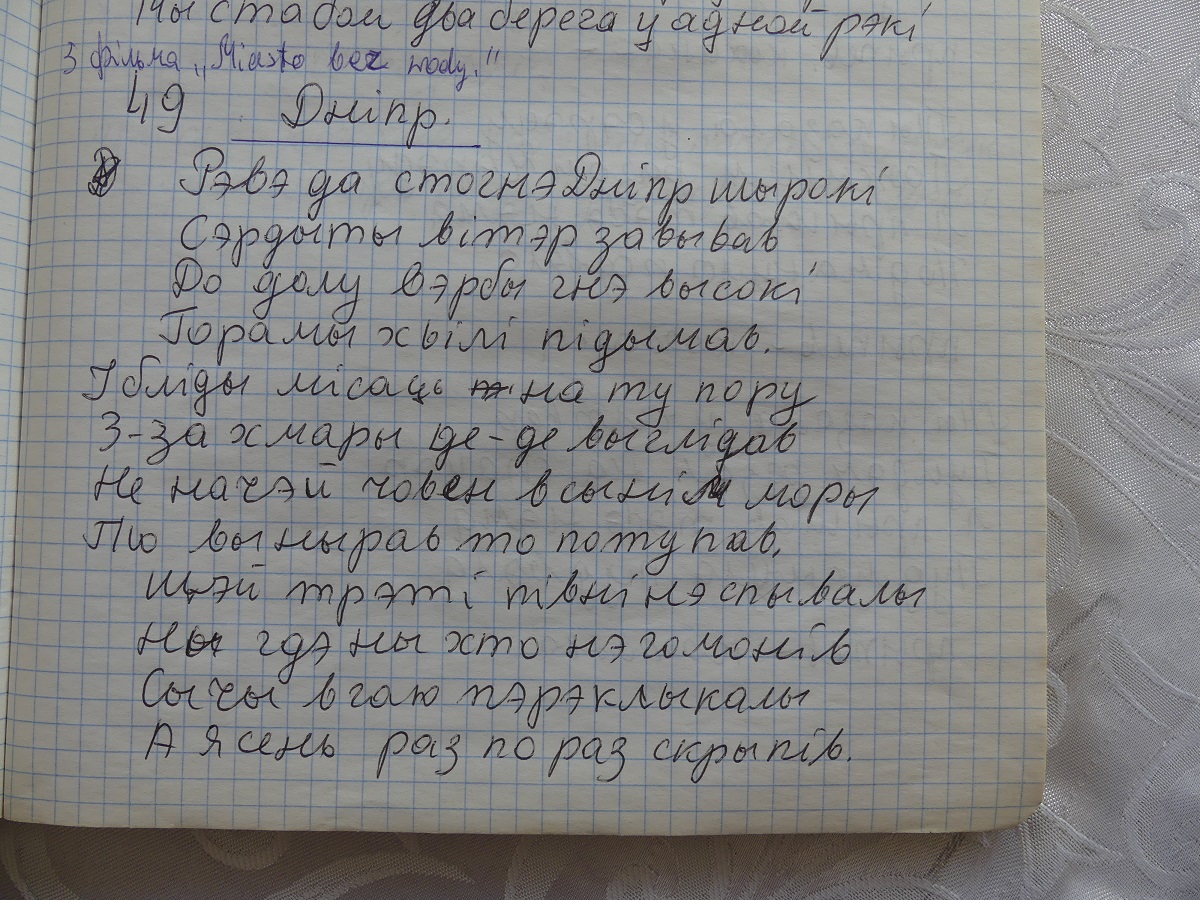 Мы с табой два берега у адной рэкі
З фільма „Miasto bez wody."
49 Дніпр.
Рэвэ да стогнэ Дніпр шырокі
Сэрдыты вітэр завывав
До долу вэрбы гнэ высокі
Горамы хвілі підымав.
І бліды місаць на ту пору
З-за хмары де-де выглідав
Не начэй човен в сынім моры
То вынырав то потупав.
Щэй трэті півні нэ спывалы
Ны гдэ ны хто нэ гомонів
Сычы в гаю пэрэклыкалы
А ясень раз по раз скрыпів.